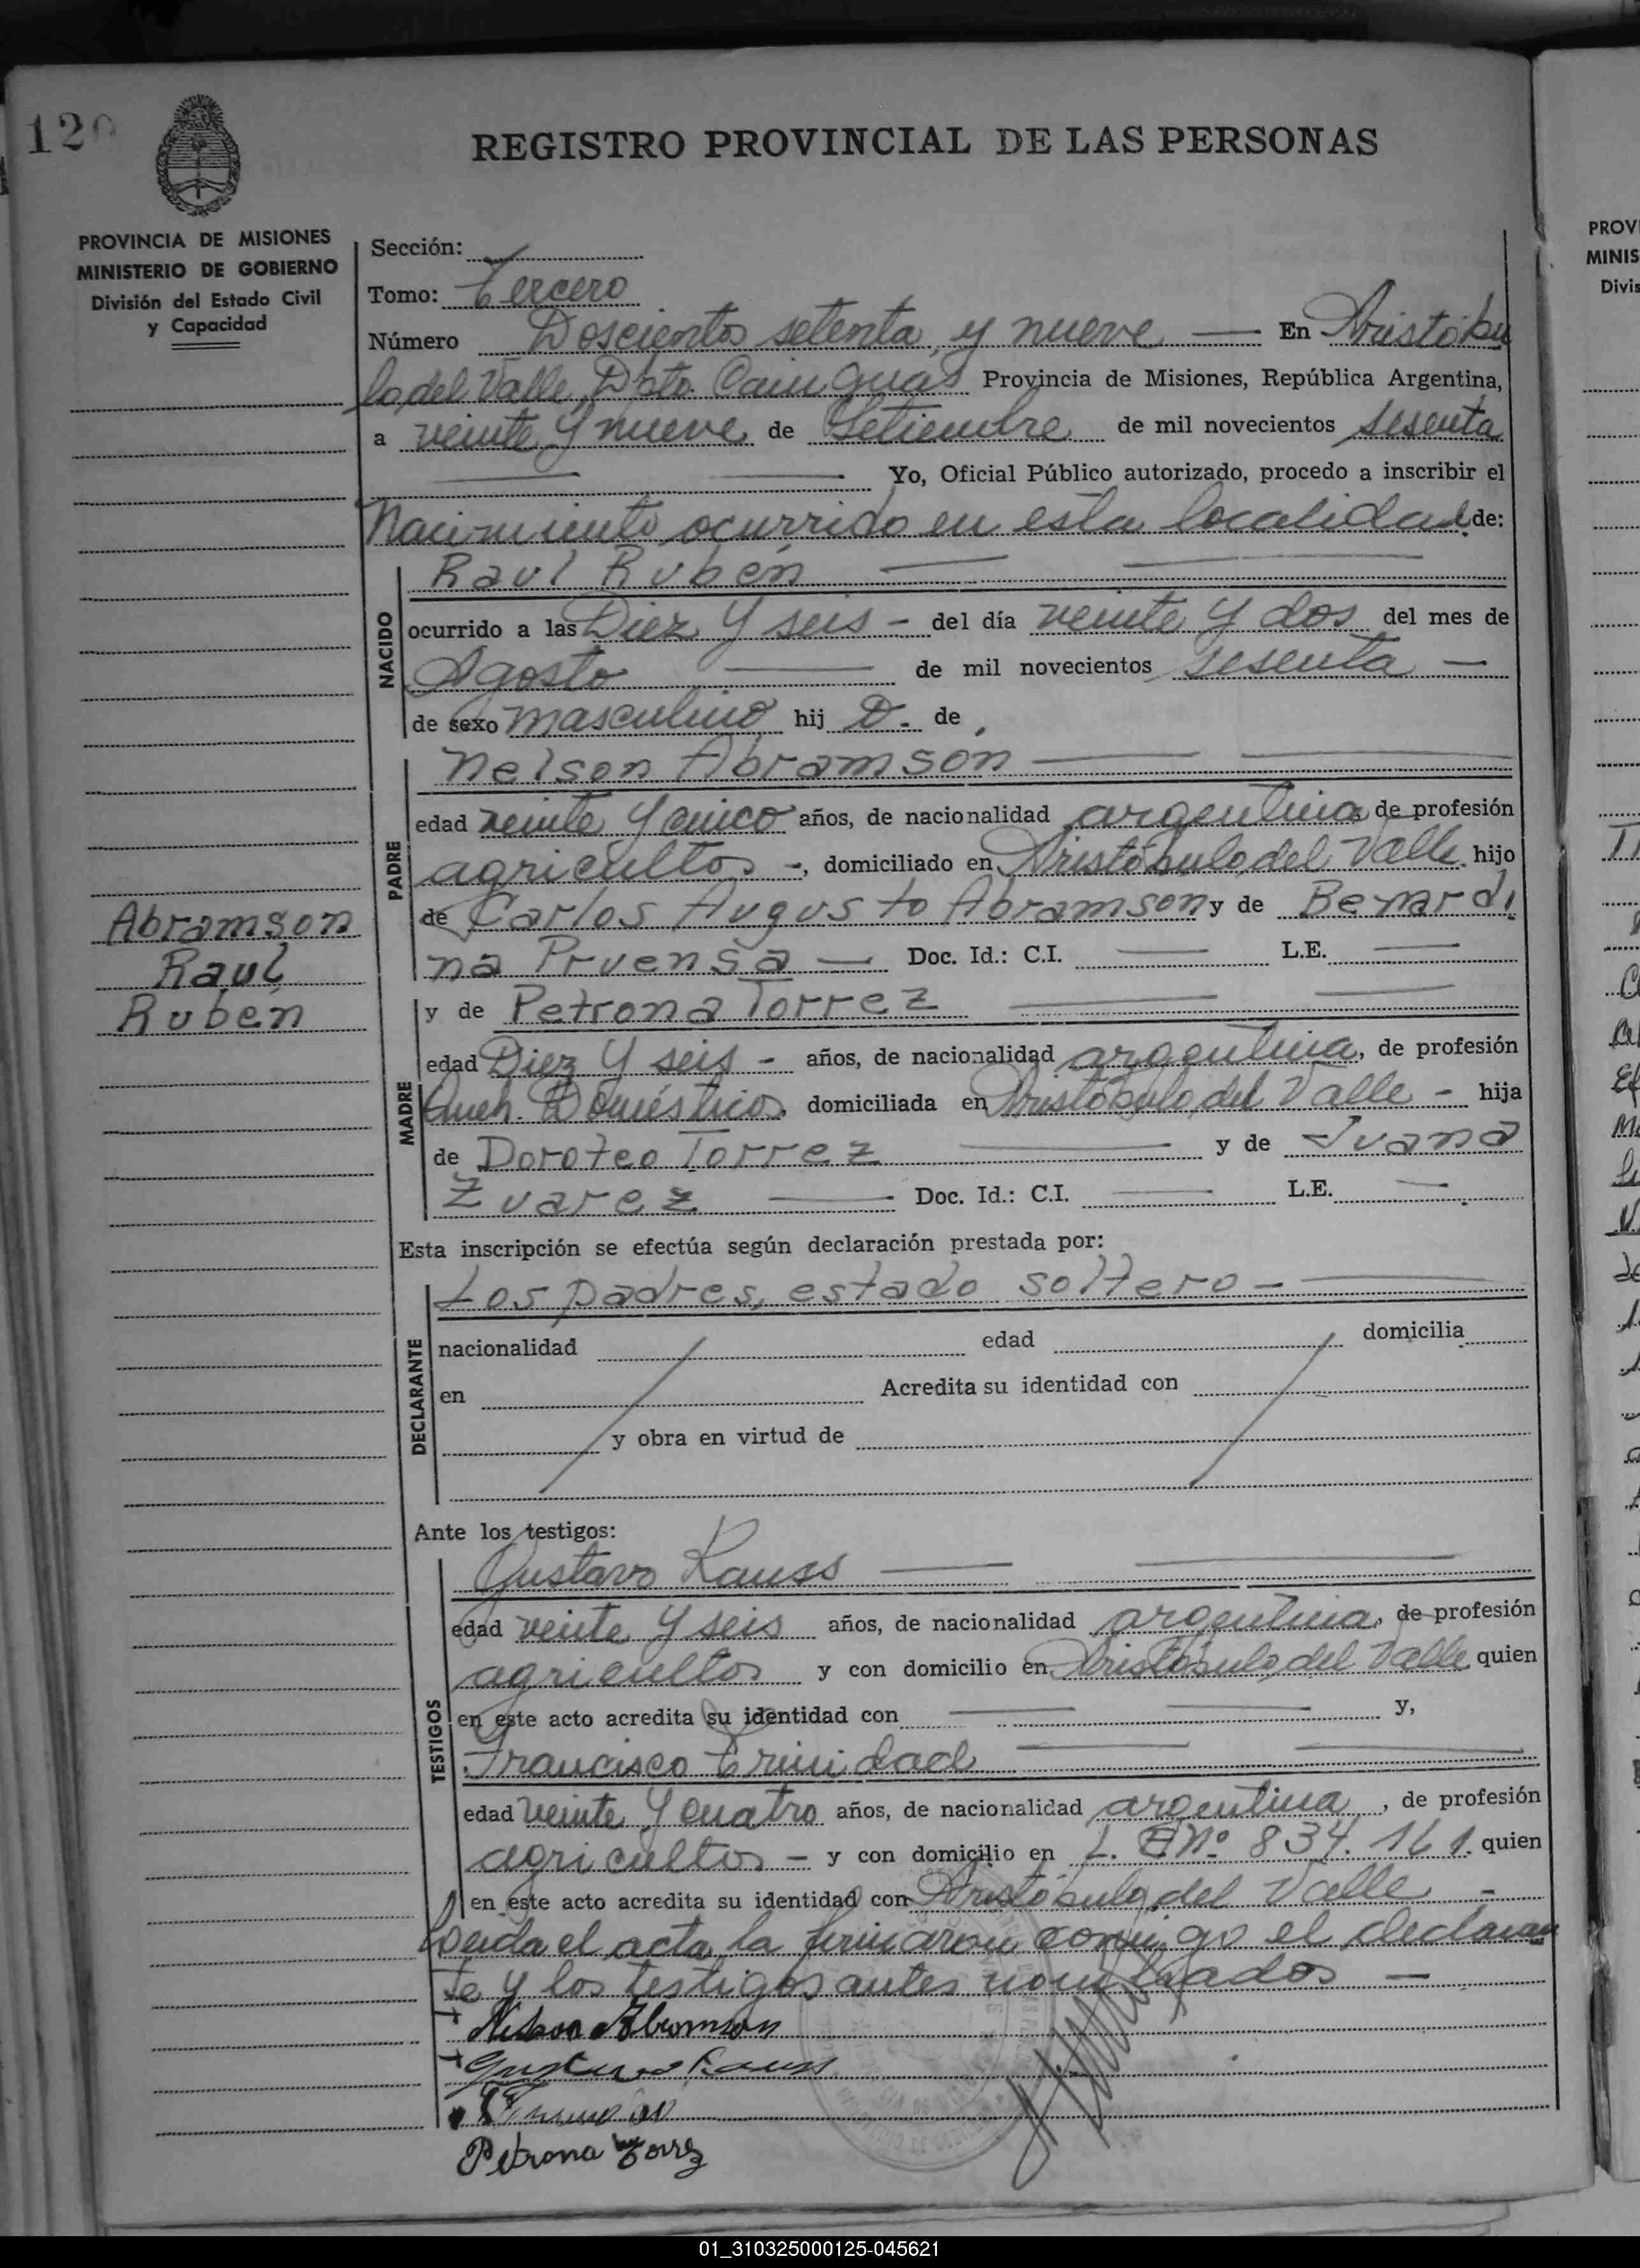 120
REGISTRO PROVINCIAL DE LAS PERSONAS
PROVINCIA DE MISIONES
MINISTERIO DE GOBIERNO
División del Estado Civil
y Capacidad
Sección:
Tomo: Tercero
Número Doscientos setenta y nueve — En Aristóbu
lo del Valle, Dpto. Cainguas Provincia de Misiones, República Argentina,
a veinte y nueve de Setiembre de mil novecientos sesenta
Yo, Oficial Público autorizado, procedo a inscribir el
Nacimiento ocurrido en esta localidad de:
NACIDO
Raul Rubén
ocurrido a las Diez y seis - del día veinte y dos del mes de
Agosto — de mil novecientos sesenta —
de sexo masculino hij o. de
PADRE
Nelson Abramsón
edad veinte y cinco años, de nacionalidad argentina de profesión
agricultor -, domiciliado en Aristóbulo del Valle hijo
de Carlos Augusto Abramson y de Bernardi
na Pruensa — Doc. Id.: C.I. — L.E. —
Abramson
Raul
Rubén
MADRE
y de Petrona Torrez
edad Diez y seis - años, de nacionalidad argentina, de profesión
Queh. Domésticos, domiciliada en Aristóbulo del Valle - hija
de Doroteo Torrez — y de Juana
Zuarez — Doc. Id.: C.I. — L.E. —
Esta inscripción se efectúa según declaración prestada por:
DECLARANTE
Los padres, estado soltero -
nacionalidad edad domicilia
en Acredita su identidad con
y obra en virtud de
Ante los testigos:
TESTIGOS
Gustavo Kauss
edad veinte y seis años, de nacionalidad argentina, de profesión
agricultor y con domicilio en Aristóbulo del Valle quien
en este acto acredita su identidad con — y,
Francisco Trinidad
edad veinte y cuatro años, de nacionalidad argentina, de profesión
agricultor - y con domicilio en L. E Nº 834.161. quien
en este acto acredita su identidad con Aristóbulo del Valle -
Leida el acta la firmaron conmigo el declaran
te y los testigos antes nombrados —
Nelson Abramson
Gustavo Kauss
Petrona Torrez
PROVI
MINIS
Divis
01_310325000125-045621